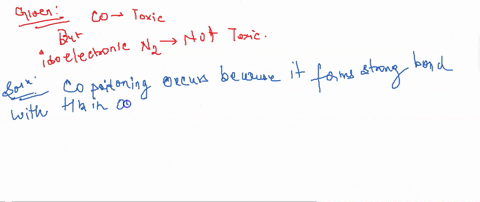 Given: CO → Toxic
But
isoelectronic N2 → Not Toxic.
Soln: CO poisoning occurs because it forms strong bond
with Hb in